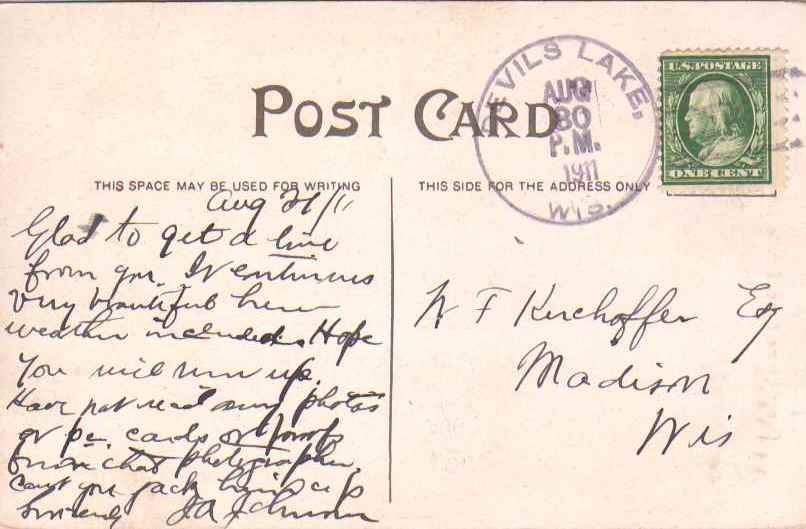 POST CARD
DEVILS LAKE,
AUG
30
P.M.
1911
WIS.
U.S. POSTAGE
ONE CENT
THIS SPACE MAY BE USED FOR WRITING
THIS SIDE FOR THE ADDRESS ONLY
Aug /11
Glad to get a line
from you. It continues
very beautiful here
weather included. Hope
you will run up.
Have not rec'd any photos
or pc. cards or proofs
from that photographer.
Can't you jack him up
Sincerely
F Kirchoffer Esq
Madison
Wis